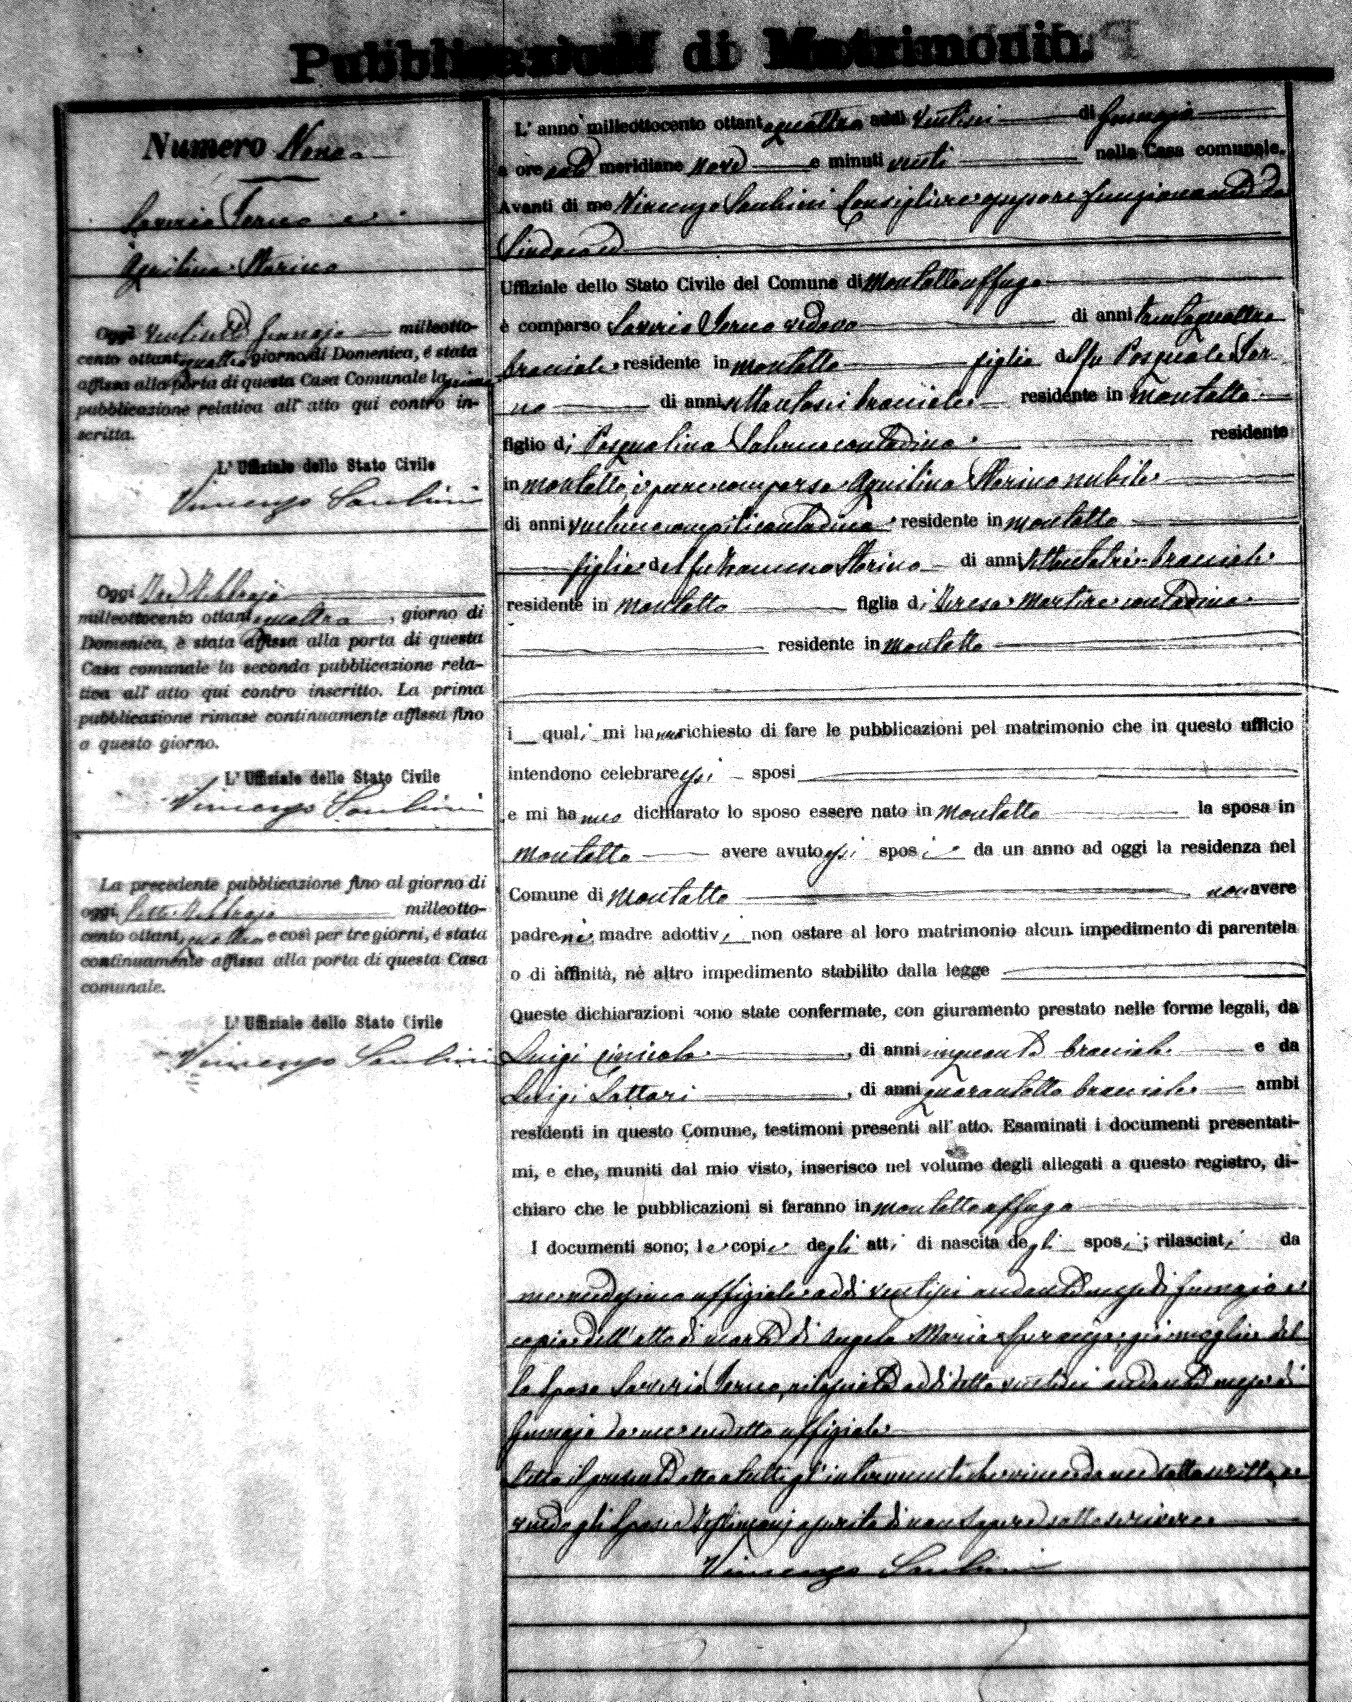 Pubblicazioni di Matrimonio.
Numero Nono
Saverio Terno e
Aquilina Storino
Oggi ventisette Gennajo milleotto-
cento ottantaquattro giorno di Domenica, é stata
affissa alla porta di questa Casa Comunale la prima
pubblicazione relativa all' atto qui contro in-
scritta.
L' Uffiziale dello Stato Civile
Vincenzo
Oggi tre Febbrajo
milleottocento ottantaquattro, giorno di
Domenica, è stata affissa alla porta di questa
Casa comunale la seconda pubblicazione rela-
tiva all' atto qui contro inscritto. La prima
pubblicazione rimase continuamente affissa fino
a questo giorno.
L' Uffiziale dello Stato Civile
Vincenzo
La precedente pubblicazione fino al giorno di
oggi sette Febbrajo milleotto-
cento ottantaquattro e così per tre giorni, é stata
continuamente affissa alla porta di questa Casa
comunale.
L' Uffiziale dello Stato Civile
Vincenzo
L' anno milleottocento ottantaquattro addì ventisei di Gennajo
a ore anti meridiane nove e minuti venti nella Casa comunale.
Avanti di me Vincenzo Consigliere funzionante da
Sindaco ed
Uffiziale dello Stato Civile del Comune di Montalto uffugo
è comparso Saverio Terno vedovo di anni trentaquattro
bracciale residente in Montalto figlio del fu Pasquale Ter-
no di anni settantasei bracciale residente in Montalto
figlio di Pasqualina Salerno contadina residente
in Montalto, è pure comparsa Aquilina Storino nubile
di anni ventuno compiti contadina residente in Montalto
figlia del fu Francesco Storino di anni settantatre bracciale
residente in Montalto figlia di Teresa Martire contadina
residente in Montalto
i quali mi hanno richiesto di fare le pubblicazioni pel matrimonio che in questo ufficio
intendono celebrare essi sposi
e mi hanno dichiarato lo sposo essere nato in Montalto la sposa in
Montalto avere avuto essi sposi da un anno ad oggi la residenza nel
Comune di Montalto non avere
padre nè madre adottivi non ostare al loro matrimonio alcun impedimento di parentela
o di affinità, nè altro impedimento stabilito dalla legge
Queste dichiarazioni sono state confermate, con giuramento prestato nelle forme legali, da
Luigi, di anni cinquanta bracciale e da
Luigi Lattari, di anni quarantotto bracciale ambi
residenti in questo Comune, testimoni presenti all' atto. Esaminati i documenti presentati-
mi, e che, muniti dal mio visto, inserisco nel volume degli allegati a questo registro, di-
chiaro che le pubblicazioni si faranno in Montalto uffugo
I documenti sono; le copie degli atti di nascita degli sposi; rilasciati da
me medesimo uffiziale addì ventisei andante mese di Gennajo e
copia dell' atto di morte di Angela Maria già moglie del
lo sposo Saverio Terno, rilasciata addì detto ventisei andante mese di
Gennajo da me suddetto uffiziale
Letto il presente atto a tutti gl' intervenuti che viene da me sottoscritto, e
non dagli sposi e testimonj asserito di non sapere sottoscrivere
Vincenzo